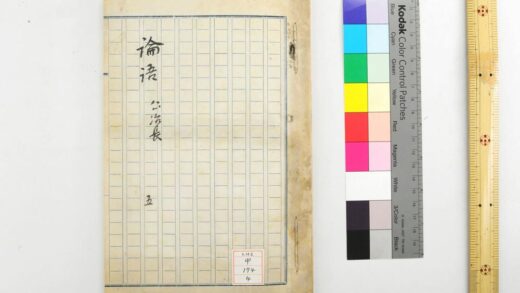 論語
公冶長
五
甲
174
4
Kodak Color Control Patches
Blue
Cyan
Green
Yellow
Red
Magenta
White
3/Color
Black